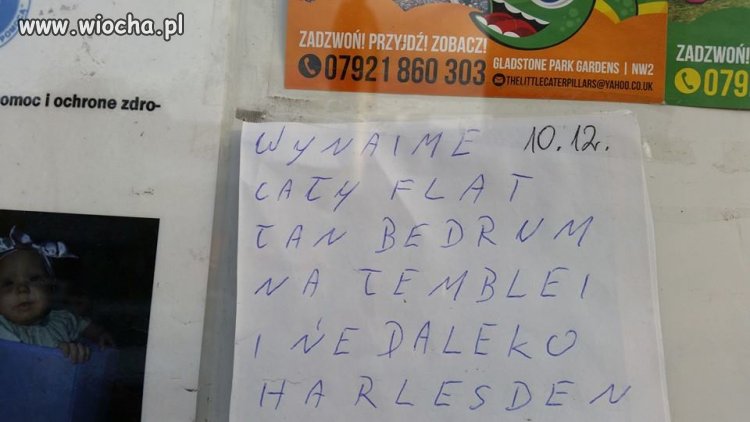 www.wiocha.pl
ZADZWOŃ! PRZYJDŹ! ZOBACZ!
07921 860 303
GLADSTONE PARK GARDENS | NW2
THELITTLECATERPILLARS@YAHOO.CO.UK
ZADZWOŃ!
079
omoc i ochrone zdro-
WYNAIME 10.12r.
CAŁY FLAT
TAN BEDRUM
NA TEMBLEI
I NEDALEKO
HARLESDEN